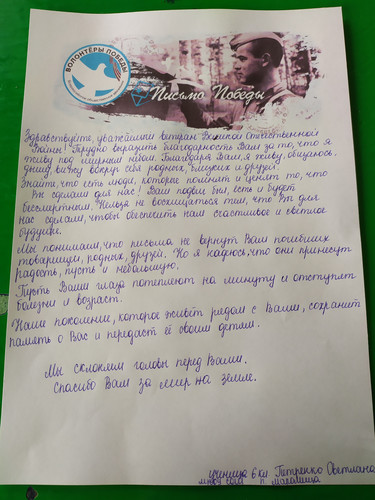 ВОЛОНТЁРЫ ПОБЕДЫ
Письмо Победы
Здравствуйте, уважаемый ветеран Великой Отечественной
Войны! Трудно выразить благодарность Вам за то, что я
живу под мирным небом. Благодаря Вам, я живу, общаюсь.
дышу, вижу вокруг себя родных, близких и друзей.
Знайте, что есть люди, которые помнят и ценят то, что
Вы сделали для нас! Ваш подвиг был, есть и будет
бессмертным. Нельзя не восхищаться тем, что Вы для
нас сделали, чтобы обеспечить нам счастливое и светлое
будущее.
Мы понимаем, что письма не вернут Вам погибших
товарищей, родных, друзей. Но я надеюсь, что они принесут
радость, пусть и небольшую.
Пусть Ваши глаза потеплеют на минуту и отступят
болезни и возраст.
Наше поколение, которое живёт рядом с Вами, сохранит
память о Вас и передаст её своим детям.
Мы склоняем головы перед Вами.
Спасибо Вам за мир на земле.
ученица 6 кл Петренко Светлана
МКОУ СОШ п.